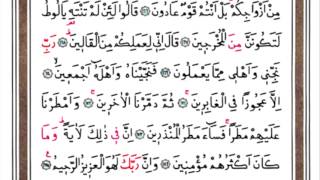 مِنْ اَزْوَاجِكُمْ بَلْ اَنْتُمْ قَوْمٌ عَادُونَ ﴿١٦٦﴾ قَالُوا لَئِنْ لَمْ تَنْتَهِ يَالُوطُ
لَتَكُونَنَّ مِنَ الْمُخْرَجِينَ ﴿١٦٧﴾ قَالَ اِنِّي لِعَمَلِكُمْ مِنَ الْقَالِينَ ﴿١٦٨﴾ رَبِّ
نَجِّنِي وَاَهْلِي مِمَّا يَعْمَلُونَ ﴿١٦٩﴾ فَنَجَّيْنَاهُ وَاَهْلَهُ اَجْمَعِينَ ﴿١٧٠﴾
اِلَّا عَجُوزًا فِي الْغَابِرِينَ ﴿١٧١﴾ ثُمَّ دَمَّرْنَا الْاٰخَرِينَ ﴿١٧٢﴾ وَاَمْطَرْنَا
عَلَيْهِمْ مَطَرًا فَسَاءَ مَطَرُ الْمُنْذَرِينَ ﴿١٧٣﴾ اِنَّ فِي ذٰلِكَ لَاٰيَةً وَمَا
كَانَ اَكْثَرُهُمْ مُؤْمِنِينَ ﴿١٧٤﴾ وَاِنَّ رَبَّكَ لَهُوَ الْعَزِيزُ الرَّحِيمُ ﴿١٧٥﴾